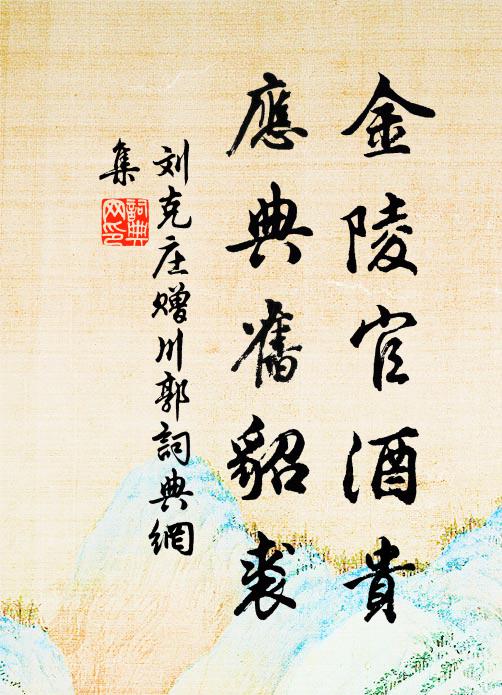 金陵官酒貴
應典舊貂裘
刘克庄赠川郭詞典網
集
詞典網印